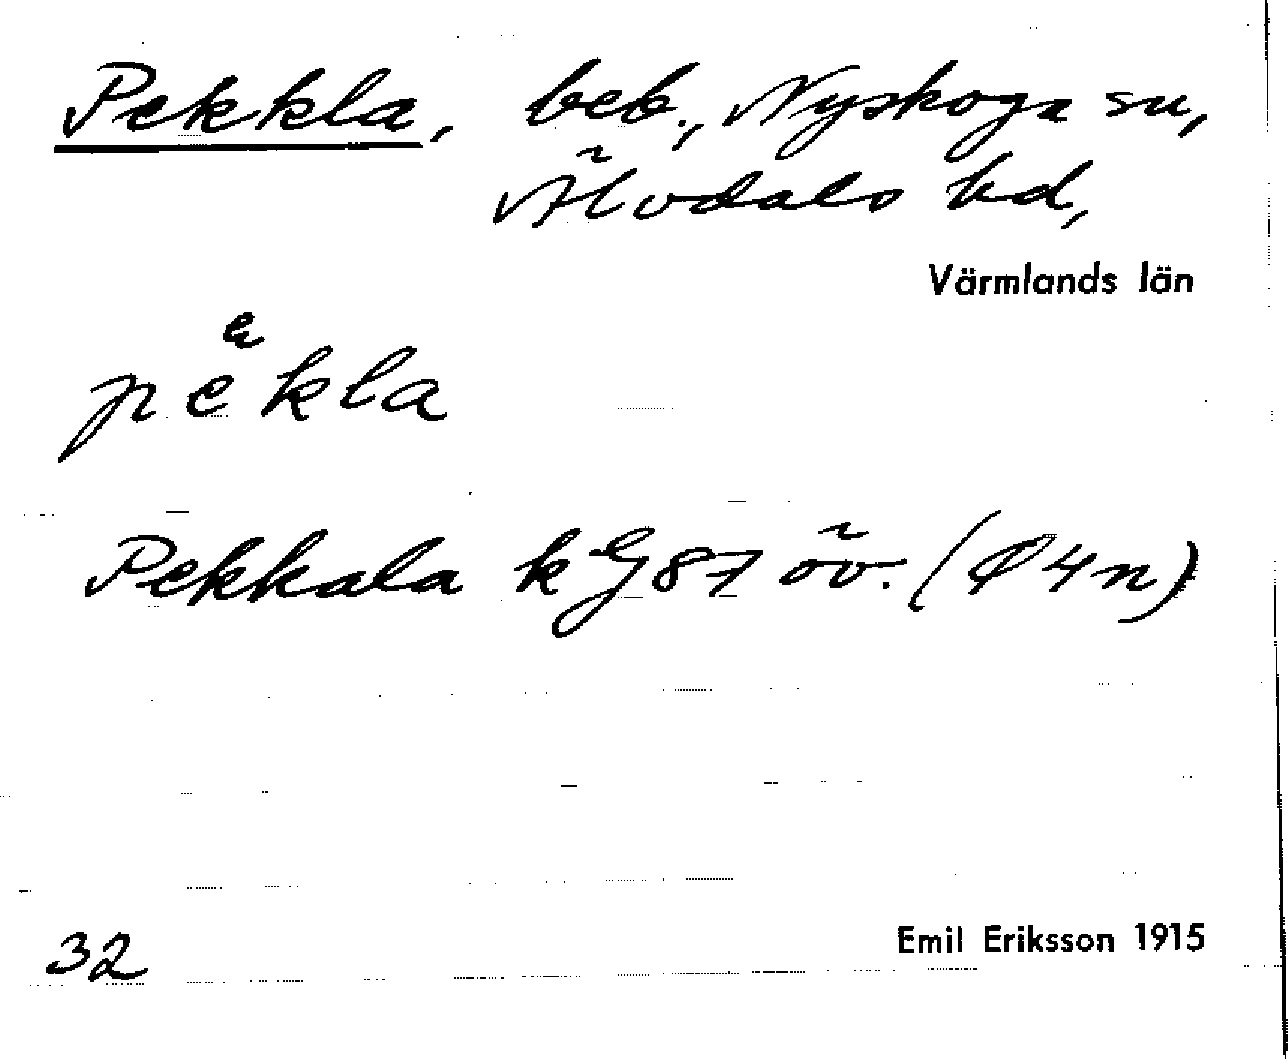 Pekkla, beb., Nyskoga sn,
Älvdals hd,
Värmlands län
pekla
Pekkala kG87 öv. (Ö4n)
32
Emil Eriksson 1915